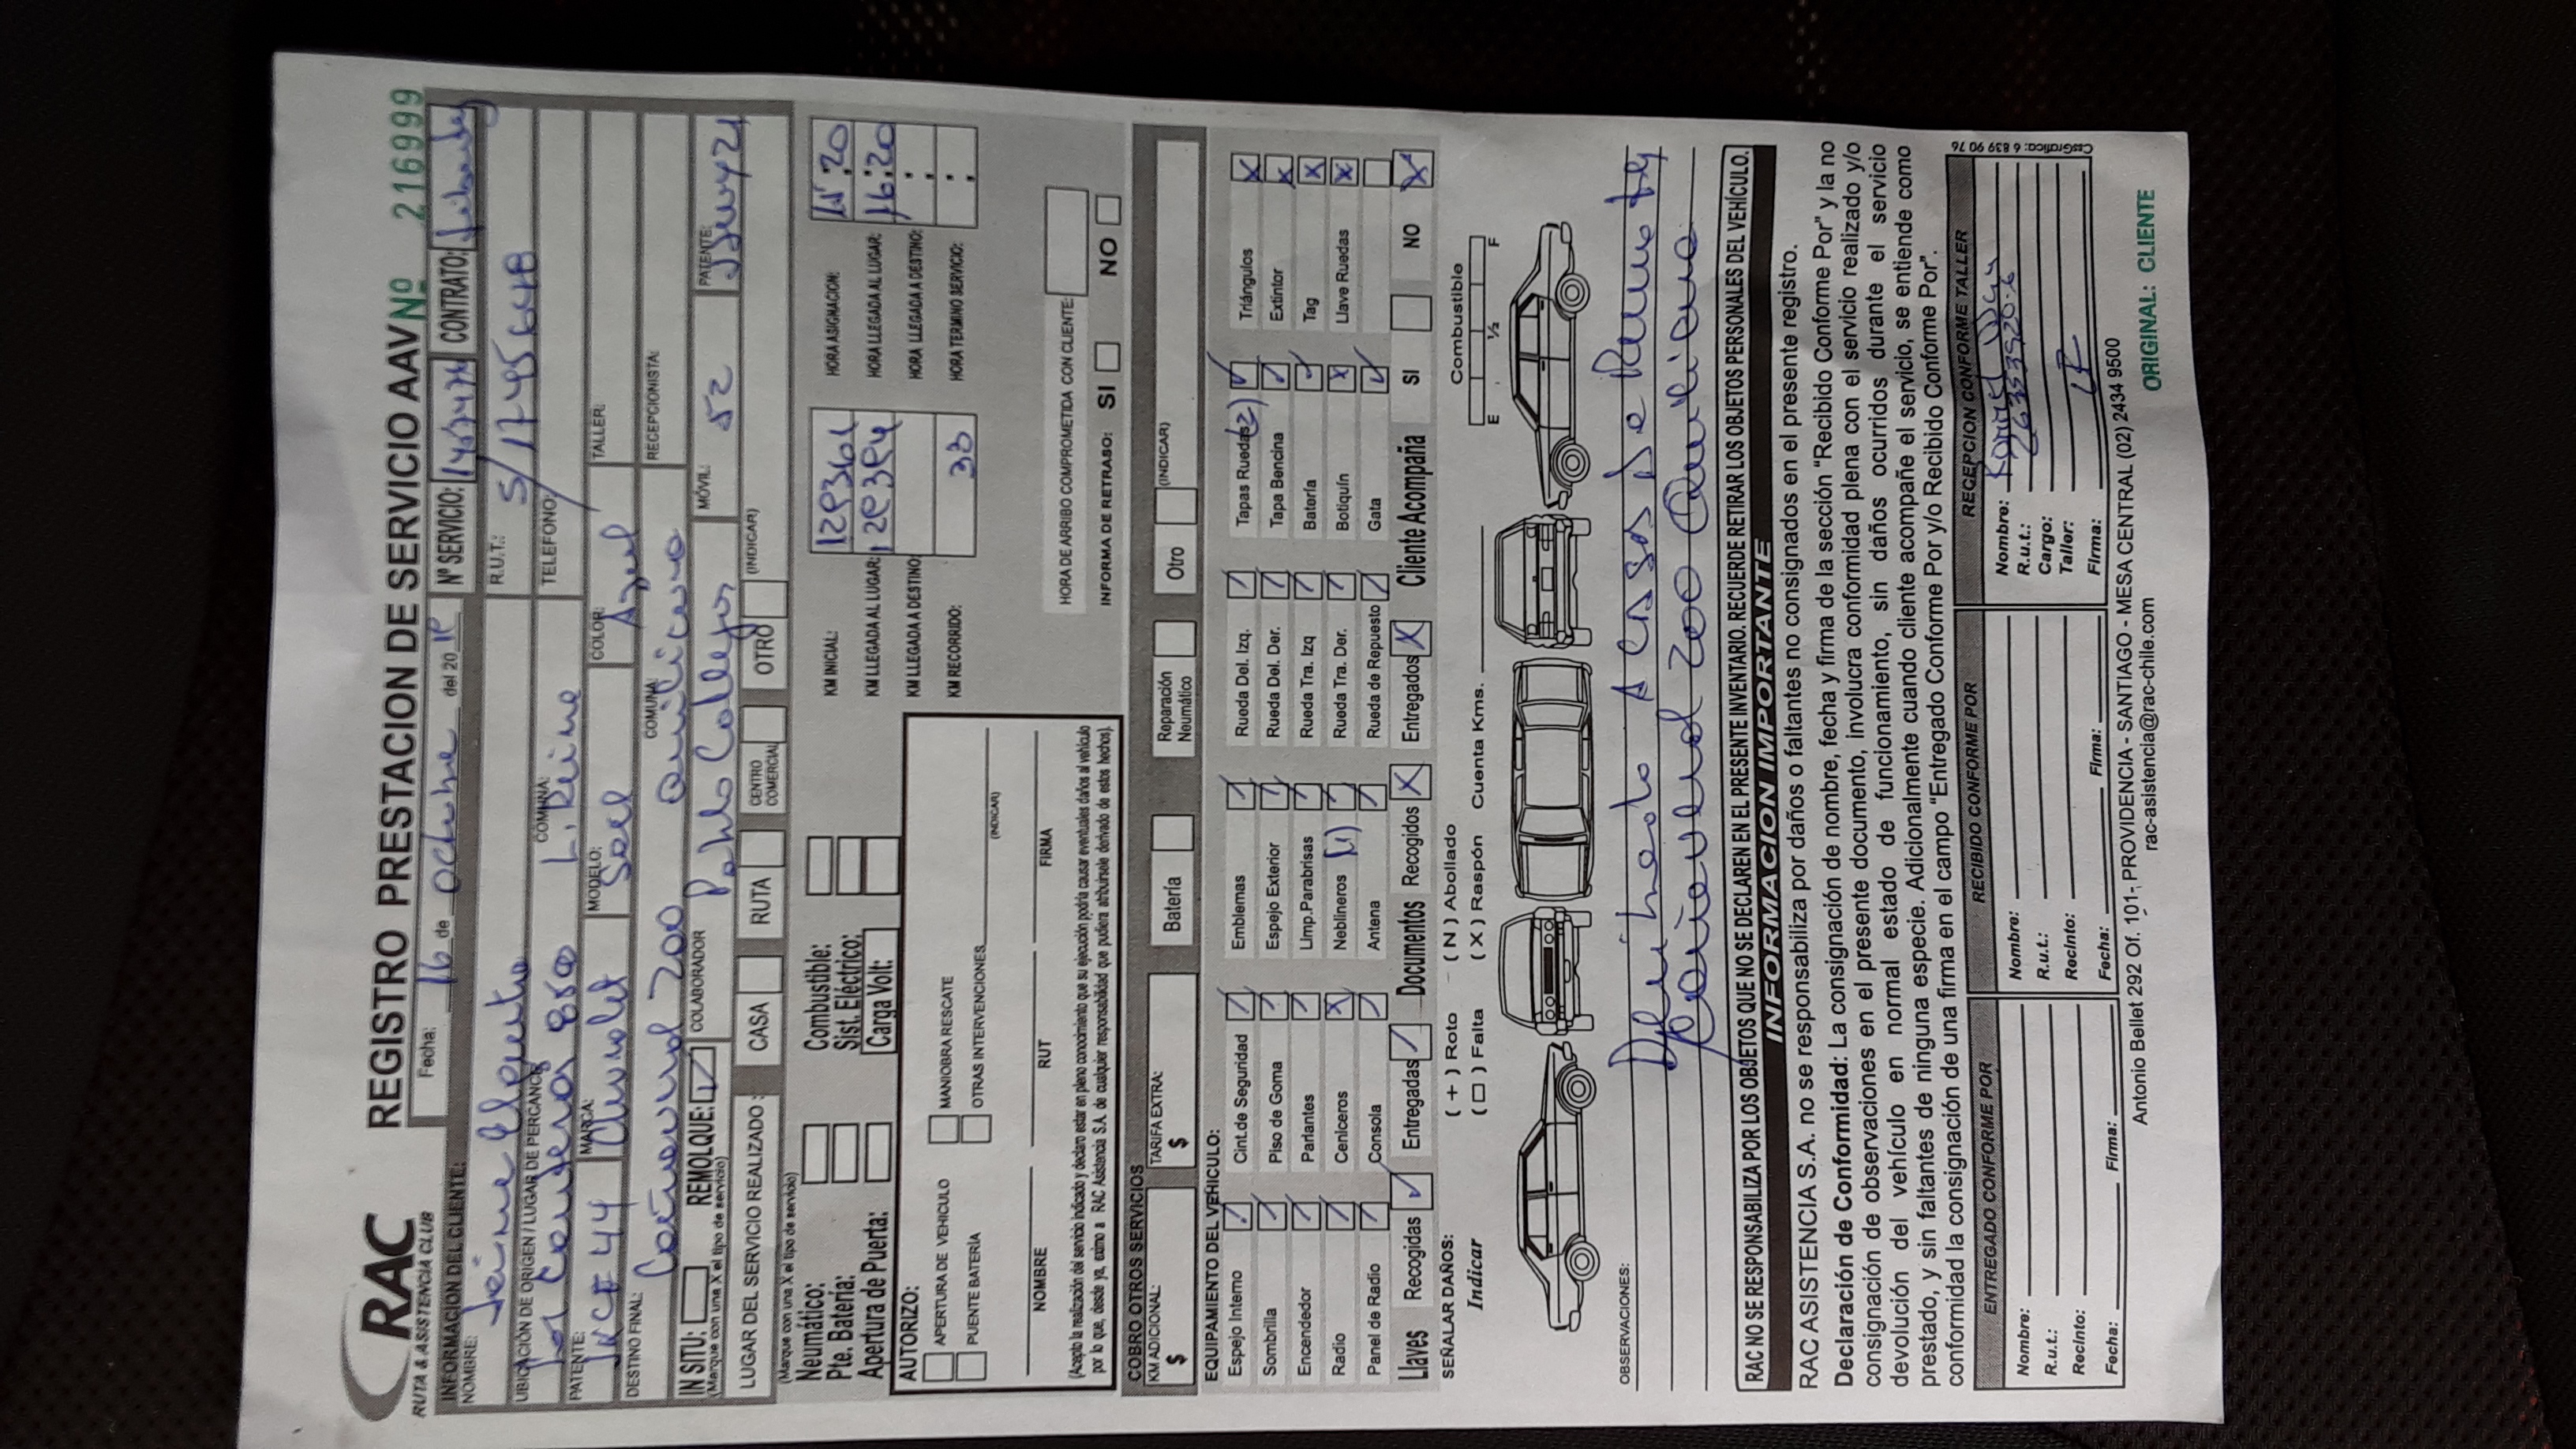 RAC
RUTA & ASISTENCIA CLUB
REGISTRO PRESTACION DE SERVICIO AAV Nº 216999
Fecha: 16 de Octubre del 20
INFORMACION DEL CLIENTE: Nº SERVICIO: CONTRATO:
NOMBRE: Jaime R.U.T.:
UBICACIÓN DE ORIGEN / LUGAR DE PERCANCE: COMUNA: L. Reina TELEFONO:
PATENTE: MARCA: Chevrolet MODELO: Sael COLOR: Azul TALLER:
DESTINO FINAL: 200 COMUNA: Quilicura RECEPCIONISTA:
IN SITU: REMOLQUE: COLABORADOR Pablo Callejas MÓVIL: 52 PATENTE:
(Marque con una X el tipo de servicio)
LUGAR DEL SERVICIO REALIZADO: CASA RUTA CENTRO COMERCIAL OTRO (INDICAR)
(Marque con una X el tipo de servicio)
Neumático: Combustible: KM INICIAL: 129361 HORA ASIGNACION:
Pte. Batería: Sist. Eléctrico: KM LLEGADA AL LUGAR: 129394 HORA LLEGADA AL LUGAR: 16:20
Apertura de Puerta: Carga Volt: KM LLEGADA A DESTINO: HORA LLEGADA A DESTINO:
KM RECORRIDO: 33 HORA TERMINO SERVICIO:
AUTORIZO:
APERTURA DE VEHICULO MANIOBRA RESCATE
PUENTE BATERÍA OTRAS INTERVENCIONES (INDICAR)
HORA DE ARRIBO COMPROMETIDA CON CLIENTE:
NOMBRE RUT FIRMA
INFORMA DE RETRASO: SI NO
(Acepto la realización del servicio indicado y declaro estar en pleno conocimiento que su ejecución podría causar eventuales daños al vehículo
por lo que, desde ya, eximo a RAC Asistencia S.A. de cualquier responsabilidad que pudiera atribuirsele derivado de estos hechos).
COBRO OTROS SERVICIOS
KM ADICIONAL: $ TARIFA EXTRA: $ Batería Reparación Neumático Otro (INDICAR)
EQUIPAMIENTO DEL VEHICULO:
Espejo Interno Cint.de Seguridad Emblemas Rueda Del. Izq. Tapas Ruedas (2) Triángulos
Sombrilla Piso de Goma Espejo Exterior Rueda Del. Der. Tapa Bencina Extintor
Encendedor Parlantes Limp.Parabrisas Rueda Tra. Izq Batería Tag
Radio Ceniceros Neblineros (1) Rueda Tra. Der. Botiquín Llave Ruedas
Panel de Radio Consola Antena Rueda de Repuesto Gata
Llaves Recogidas Entregadas Documentos Recogidos Entregados Cliente Acompaña SI NO
SEÑALAR DAÑOS: ( + ) Roto ( N ) Abollado Combustible
Indicar ( □ ) Falta ( X ) Raspón Cuenta Kms. E ½ F
OBSERVACIONES:
A CASA DE
200 Quilicura
RAC NO SE RESPONSABILIZA POR LOS OBJETOS QUE NO SE DECLAREN EN EL PRESENTE INVENTARIO. RECUERDE RETIRAR LOS OBJETOS PERSONALES DEL VEHÍCULO.
INFORMACION IMPORTANTE
RAC ASISTENCIA S.A. no se responsabiliza por daños o faltantes no consignados en el presente registro.
Declaración de Conformidad: La consignación de nombre, fecha y firma de la sección "Recibido Conforme Por" y la no
consignación de observaciones en el presente documento, involucra conformidad plena con el servicio realizado y/o
devolución del vehículo en normal estado de funcionamiento, sin daños ocurridos durante el servicio
prestado, y sin faltantes de ninguna especie. Adicionalmente cuando cliente acompañe el servicio, se entiende como
conformidad la consignación de una firma en el campo "Entregado Conforme Por y/o Recibido Conforme Por".
ENTREGADO CONFORME POR RECIBIDO CONFORME POR RECEPCION CONFORME TALLER
Nombre: Nombre: Nombre:
R.u.t.: R.u.t.: R.u.t.:
Recinto: Recinto: Cargo:
Taller:
Fecha: Firma: Fecha: Firma: Firma:
CasGrafica: 6 839 90 76
Antonio Bellet 292 Of. 101-, PROVIDENCIA - SANTIAGO - MESA CENTRAL (02) 2434 9500
rac-asistencia@rac-chile.com
ORIGINAL: CLIENTE